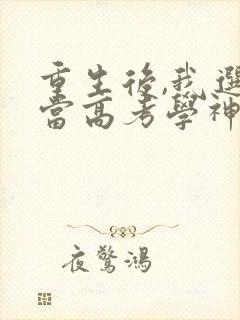 重生後,我選
當高考學神
夜驚鴻